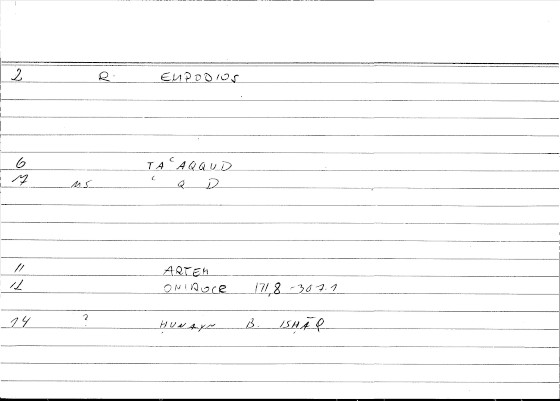 2 R. EMPODIOS
6 TAᶜAQQUD
17 MS ᶜ Q D
11 ARTEM
12 ONIROCR 171,8-307.1
14 ? ḤUNAYN B. ISḤĀQ